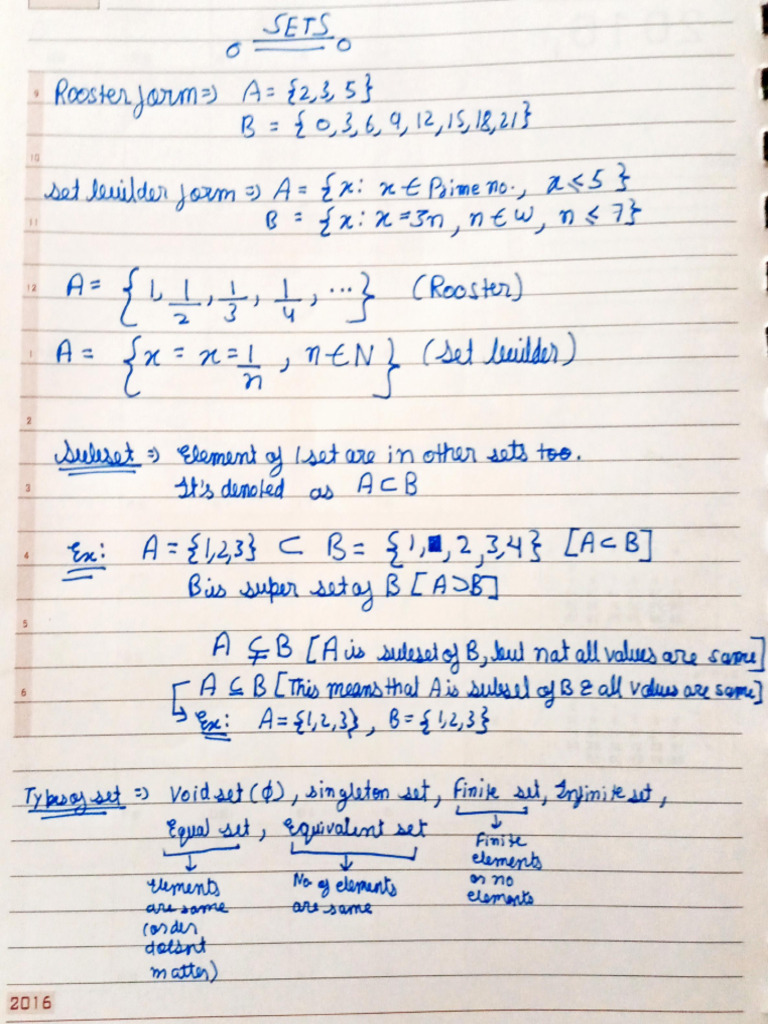 SETS
Rooster form => A = {2, 3, 5}
B = {0, 3, 6, 9, 12, 15, 18, 21}
set builder form => A = {x : x ∈ Prime no., x ≤ 5}
B = {x : x = 3n, n ∈ W, n ≤ 7}
A = {1, 1/2, 1/3, 1/4, ...} (Rooster)
A = {x = x = 1/n, n ∈ N} (set builder)
Subset => Element of 1 set are in other sets too.
It's denoted as A ⊂ B
Ex: A = {1,2,3} ⊂ B = {1, , 2, 3, 4} [A ⊂ B]
B is super set of B [A ⊃ B]
A ⊊ B [A is subset of B, but not all values are same]
A ⊆ B [This means that A is subset of B & all values are same]
Ex: A = {1,2,3}, B = {1,2,3}
Types of set => Void set (φ), singleton set, Finite set, Infinite set,
Equal set, Equivalent set
Finite
elements
or no
elements
Elements
are same
(order
doesnt
matter)
No of elements
are same
9
10
11
12
1
2
3
4
5
6
2016